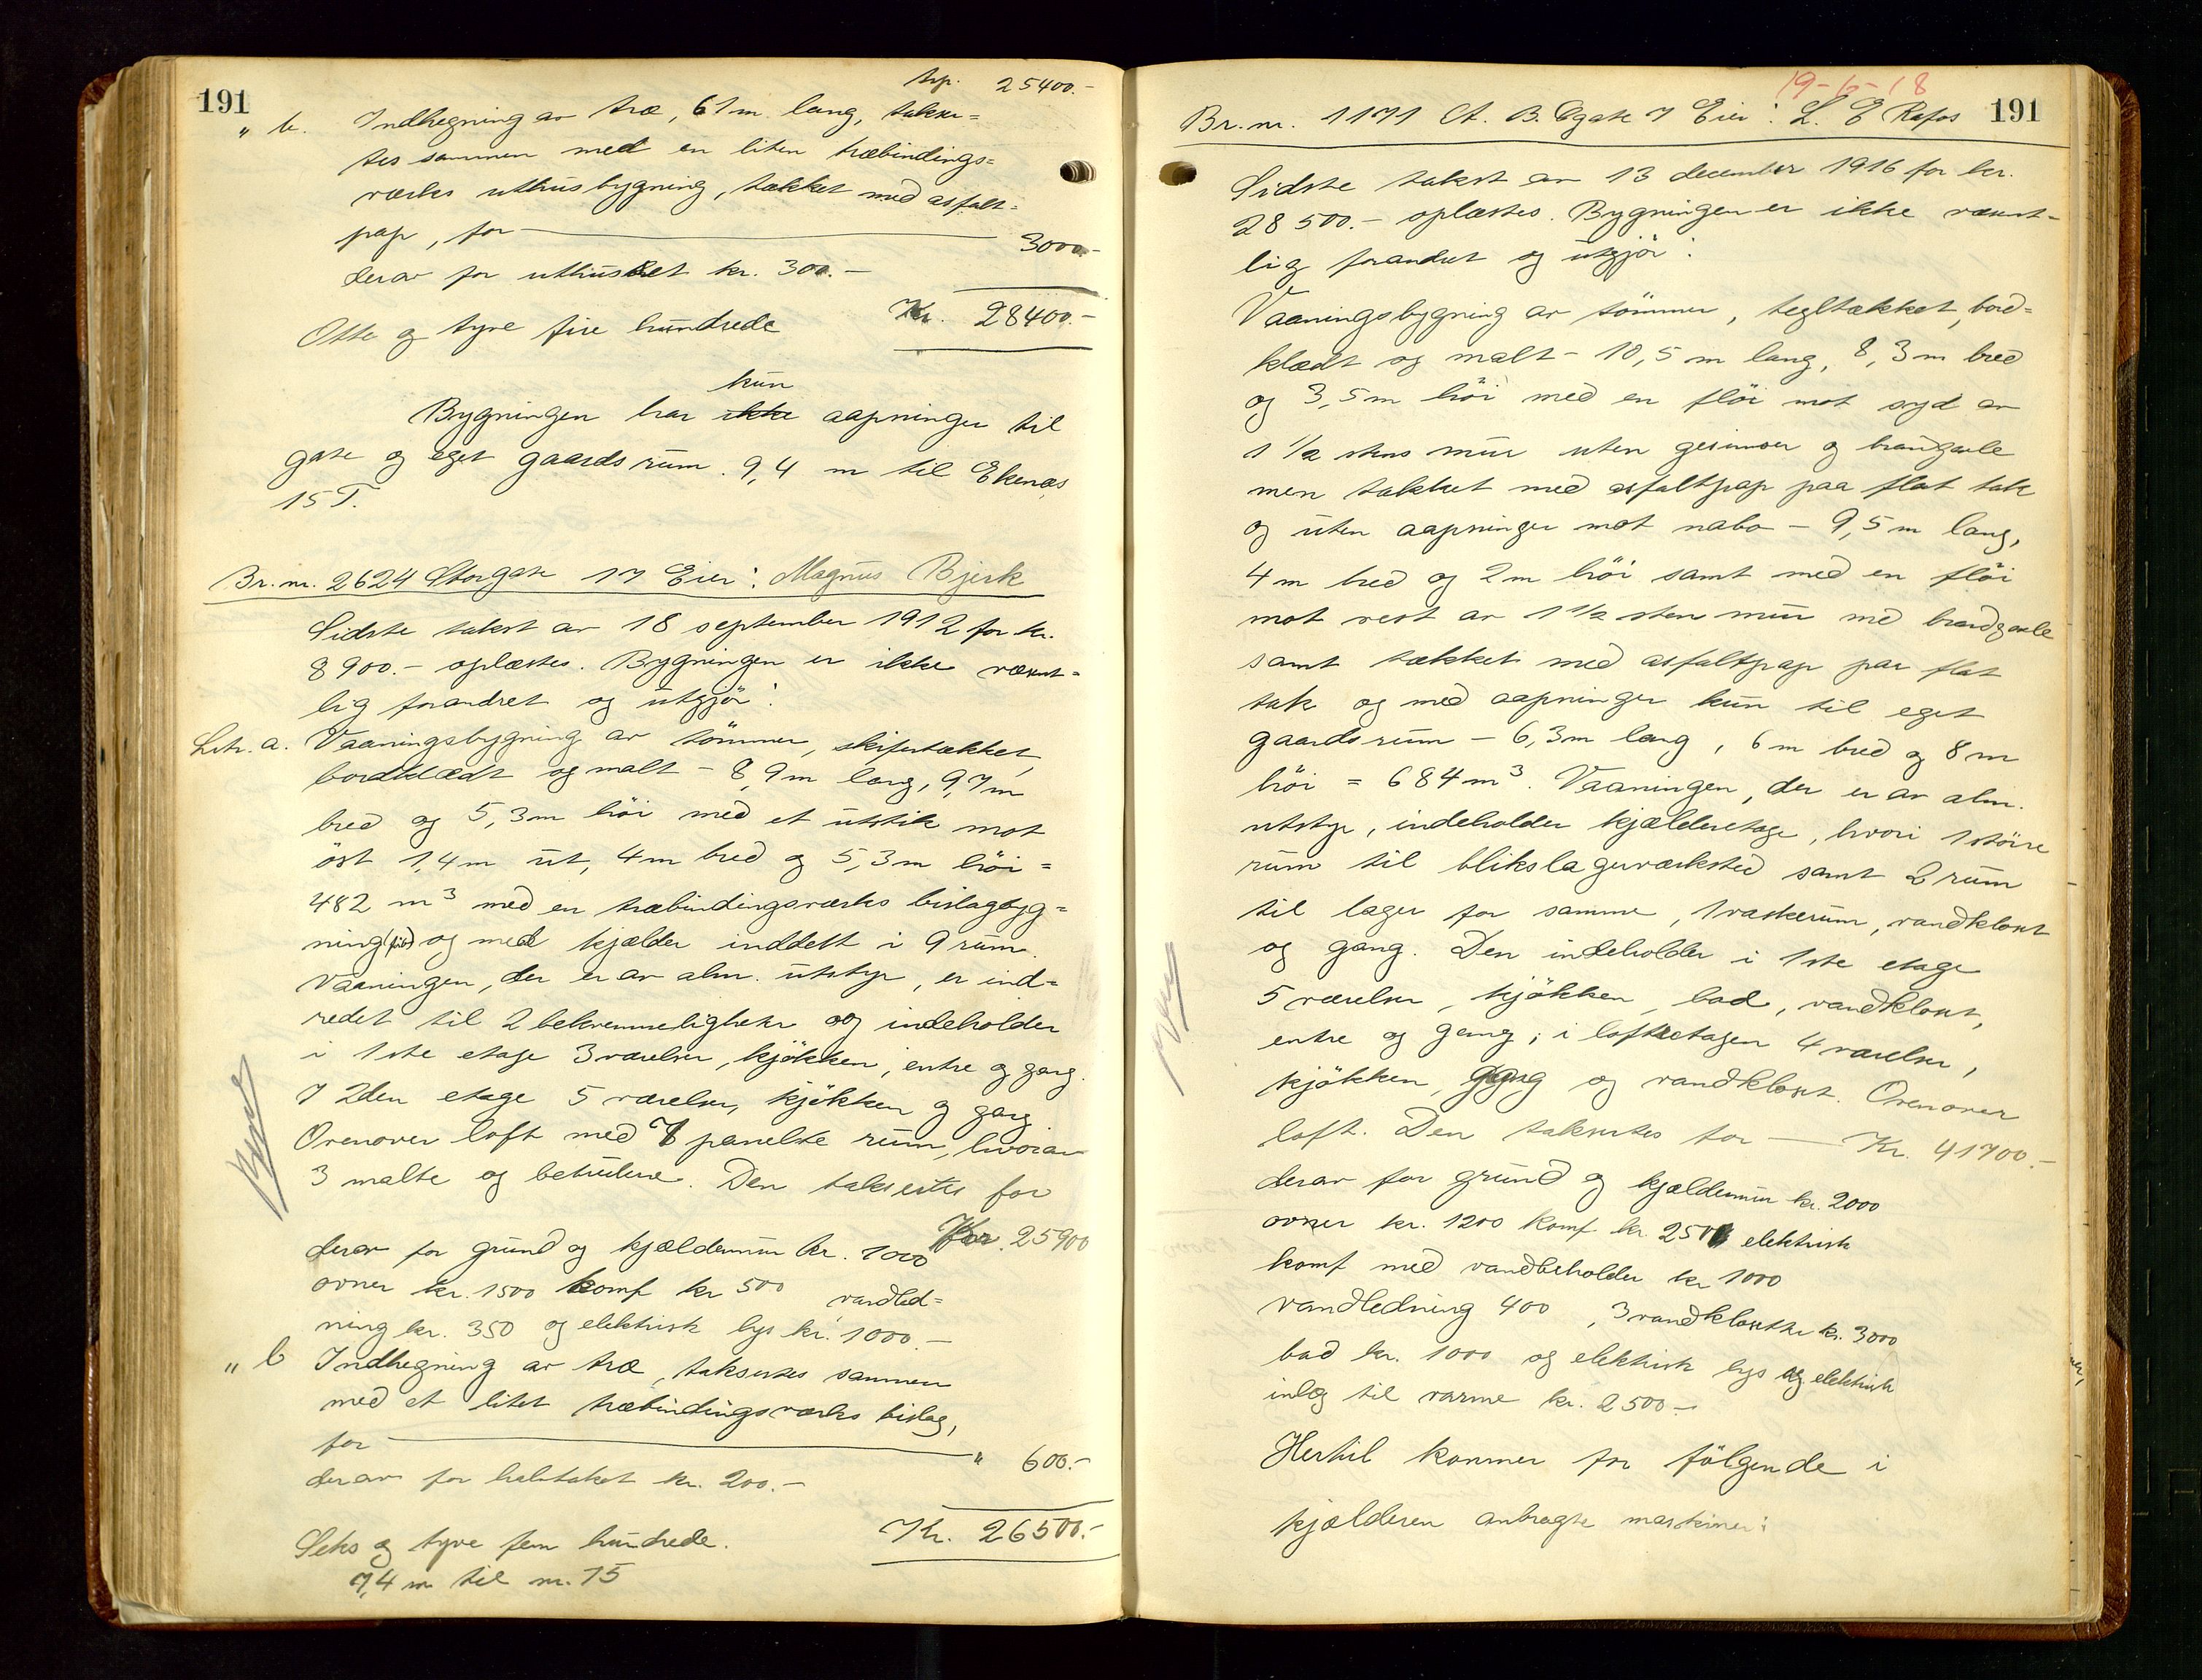 191
trp. 25400.-
" b. Indhegning av træ, 61 m. lang, takser=
tes sammen med en liten træbindings=
værks uthusbygning, tækket med asfalt=
pap, for 3000.-
derav for uthuset kr. 300.-
Otte og tyve fire hundrede Kr. 28400.-
kun
Bygningen har ikke aapninger til
gate og eget gaardsrum. 9,4 m til Ekenæs
15 T.
Br. nr. 2624 Storgate 17 Eier: Magnus Bjerk
Sidste takst av 18 september 1912 for kr.
8900.- oplæstes. Bygningen er ikke væsent=
lig forandret og utgjør:
Litr. a. Vaaningsbygning av tömmer, skifertækket,
bordklædt og malt - 8,9 m lang, 9,7 m
bred og 5,3 m höi med et utstik mot
öst 1,4 m ut, 4 m bred og 5,3 m höi =
482 m³ med en træbindingsværks bislagbyg=
ning og med kjælder inddelt i 9 rum.
Vaaningen, der er av alm. utstyr, er ind=
redet til 2 bekvemmeligheter og indeholder
i 1ste etage 3 værelser, kjökken, entre og gang.
I 2den etage 5 værelser, kjökken og gang
Ovenover loft med 7 panelte rum, hvorav
3 malte og betrukne. Den taksertes for
Kr. 25900
derav for grund og kjældermur kr. 1000
ovner kr. 1500 komf kr 500 vandled=
ning kr. 350 og elektrisk lys kr. 1000.-
" b Indhegning av træ, taksertes sammen
med et litet træbindingsværks bislag,
for " 600.-
derav for halvtaket kr. 200.-
Seks og tyve fem hundrede. Kr. 26500.-
7,4 m til nr. 15
19-6-18
191
Br. nr. 1171 Ct. B. Gate 7 Eier: L. E Refos
Sidste takst av 13 december 1916 for kr.
28500.- oplæstes. Bygningen er ikke væsent=
lig forandret og utgjör:
Vaaningsbygning av tömmer, tegltækket, bord=
klædt og malt - 10,5 m lang, 8,3 m bred
og 3,5 m höi med en flöi mot syd av
1 1/2 stens mur uten gesimser og brandgavle
men tækket med asfaltpap paa flat tak
og uten aapninger mot nabo - 9,5 m lang,
4 m bred og 2 m höi samt med en flöi
mot vest av 1 1/2 sten mur med brandgavle
samt tækket med asfaltpap paa flat
tak og med aapninger kun til eget
gaardsrum - 6,3 m lang, 6 m bred og 8 m
höi = 684 m³. Vaaningen, der er av alm.
utstyr, indeholder kjælderetage, hvori 1 större
rum til blikslagerværksted samt 2 rum
til lager for samme, 1 vaskerum, vandkloset
og gang. Den indeholder i 1ste etage
5 værelser, kjökken, bad, vandkloset,
entre og gang; i loftsetagen 4 værelser,
kjökken, gang og vandkloset. Ovenover
loft. Den taksertes for Kr. 41700.-
derav for grund og kjældermur kr. 2000
ovner kr. 1200 komf. kr. 250 elektrisk
komf med vandbeholder kr 1000
vandledning 400, 3 vandklosetter kr. 3000
bad kr. 1000 og elektrisk lys og elektrisk
inlæg til varme kr. 2500.-
Hertil kommer for fölgende i
kjælderen anbragte maskiner: